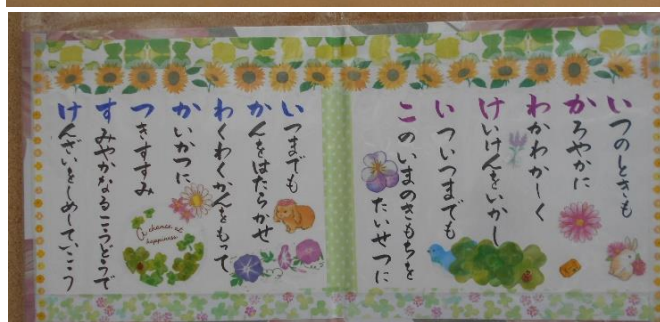 いつのときも
かろやかに
わかわかしく
けいけんをいかし
いついつまでも
このいまのきもちを
たいせつに
いつまでも
かんをはたらかせ
わくわくかんをもって
かいかつに
つきすすみ
すみやかなるこうどうで
けんざいをしめしていこう
A chance of
happiness